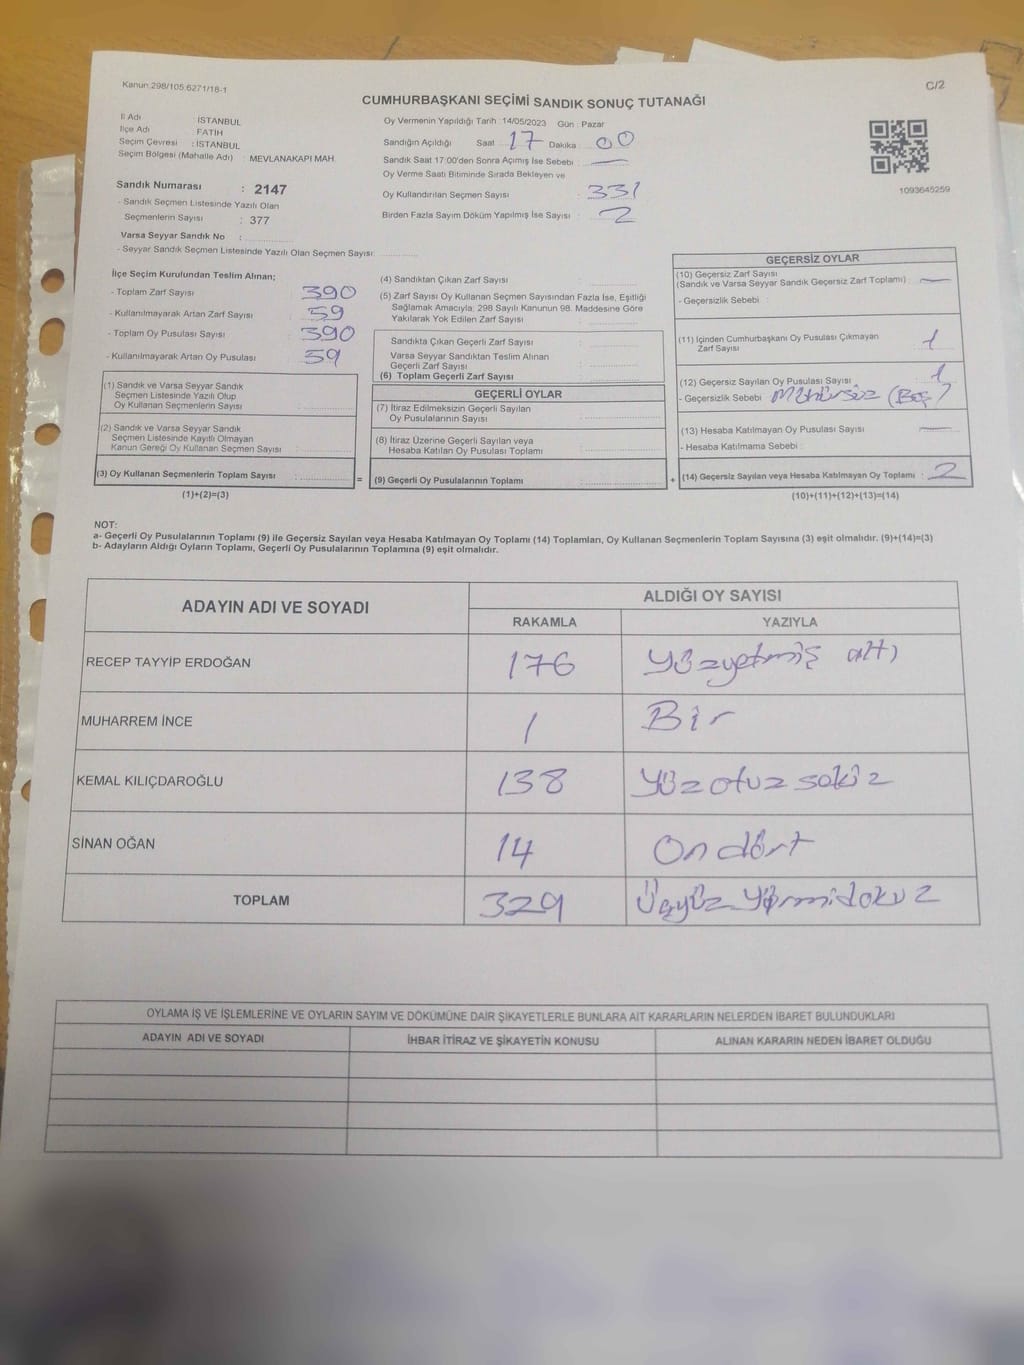 Kanun.298/105,6271/18-1
C/2
CUMHURBAŞKANI SEÇİMİ SANDIK SONUÇ TUTANAĞI
İl Adı İSTANBUL
İlçe Adı FATİH
Seçim Çevresi : İSTANBUL
Seçim Bölgesi (Mahalle Adı) : MEVLANAKAPI MAH.
Sandık Numarası : 2147
- Sandık Seçmen Listesinde Yazılı Olan
Seçmenlerin Sayısı : 377
Varsa Seyyar Sandık No :
- Seyyar Sandık Seçmen Listesinde Yazılı Olan Seçmen Sayısı:
Oy Vermenin Yapıldığı Tarih : 14/05/2023 Gün : Pazar
Sandığın Açıldığı Saat : 17 Dakika : 00
Sandık Saat 17:00'den Sonra Açımış İse Sebebi : —
Oy Verme Saati Bitiminde Sırada Bekleyen ve
Oy Kullandırılan Seçmen Sayısı : 331
Birden Fazla Sayım Döküm Yapılmış İse Sayısı : 2
1093645259
İlçe Seçim Kurulundan Teslim Alınan;
- Toplam Zarf Sayısı : 390
- Kullanılmayarak Artan Zarf Sayısı : 59
- Toplam Oy Pusulası Sayısı : 390
- Kullanılmayarak Artan Oy Pusulası : 59
(1) Sandık ve Varsa Seyyar Sandık
Seçmen Listesinde Yazılı Olup
Oy Kullanan Seçmenlerin Sayısı :
(2) Sandık ve Varsa Seyyar Sandık
Seçmen Listesinde Kayıtlı Olmayan
Kanun Gereği Oy Kullanan Seçmen Sayısı :
(3) Oy Kullanan Seçmenlerin Toplam Sayısı :
(1)+(2)=(3)
=
(4) Sandıktan Çıkan Zarf Sayısı :
(5) Zarf Sayısı Oy Kullanan Seçmen Sayısından Fazla İse, Eşitliği
Sağlamak Amacıyla; 298 Sayılı Kanunun 98. Maddesine Göre
Yakılarak Yok Edilen Zarf Sayısı :
Sandıkta Çıkan Geçerli Zarf Sayısı :
Varsa Seyyar Sandıktan Teslim Alınan
Geçerli Zarf Sayısı :
(6) Toplam Geçerli Zarf Sayısı :
GEÇERLİ OYLAR
(7) İtiraz Edilmeksizin Geçerli Sayılan
Oy Pusulalarının Sayısı :
(8) İtiraz Üzerine Geçerli Sayılan veya
Hesaba Katılan Oy Pusulası Toplamı :
(9) Geçerli Oy Pusulalarının Toplamı :
+
GEÇERSİZ OYLAR
(10) Geçersiz Zarf Sayısı
(Sandık ve Varsa Seyyar Sandık Geçersiz Zarf Toplamı) : —
- Geçersizlik Sebebi :
(11) İçinden Cumhurbaşkanı Oy Pusulası Çıkmayan
Zarf Sayısı : 1
(12) Geçersiz Sayılan Oy Pusulası Sayısı : 1
- Geçersizlik Sebebi : Mühürsüz (Boş)
(13) Hesaba Katılmayan Oy Pusulası Sayısı : —
- Hesaba Katılmama Sebebi :
(14) Geçersiz Sayılan veya Hesaba Katılmayan Oy Toplamı : 2
(10)+(11)+(12)+(13)=(14)
NOT:
a- Geçerli Oy Pusulalarının Toplamı (9) ile Geçersiz Sayılan veya Hesaba Katılmayan Oy Toplamı (14) Toplamları, Oy Kullanan Seçmenlerin Toplam Sayısına (3) eşit olmalıdır. (9)+(14)=(3)
b- Adayların Aldığı Oyların Toplamı, Geçerli Oy Pusulalarının Toplamına (9) eşit olmalıdır.
ADAYIN ADI VE SOYADI
ALDIĞI OY SAYISI
RAKAMLA YAZIYLA
RECEP TAYYİP ERDOĞAN 176 Yüzyetmiş altı
MUHARREM İNCE 1 Bir
KEMAL KILIÇDAROĞLU 138 Yüz otuz sekiz
SİNAN OĞAN 14 On dört
TOPLAM 329 Üçyüz Yirmidokuz
OYLAMA İŞ VE İŞLEMLERİNE VE OYLARIN SAYIM VE DÖKÜMÜNE DAİR ŞİKAYETLERLE BUNLARA AİT KARARLARIN NELERDEN İBARET BULUNDUKLARI
ADAYIN ADI VE SOYADI İHBAR İTİRAZ VE ŞİKAYETİN KONUSU ALINAN KARARIN NEDEN İBARET OLDUĞU